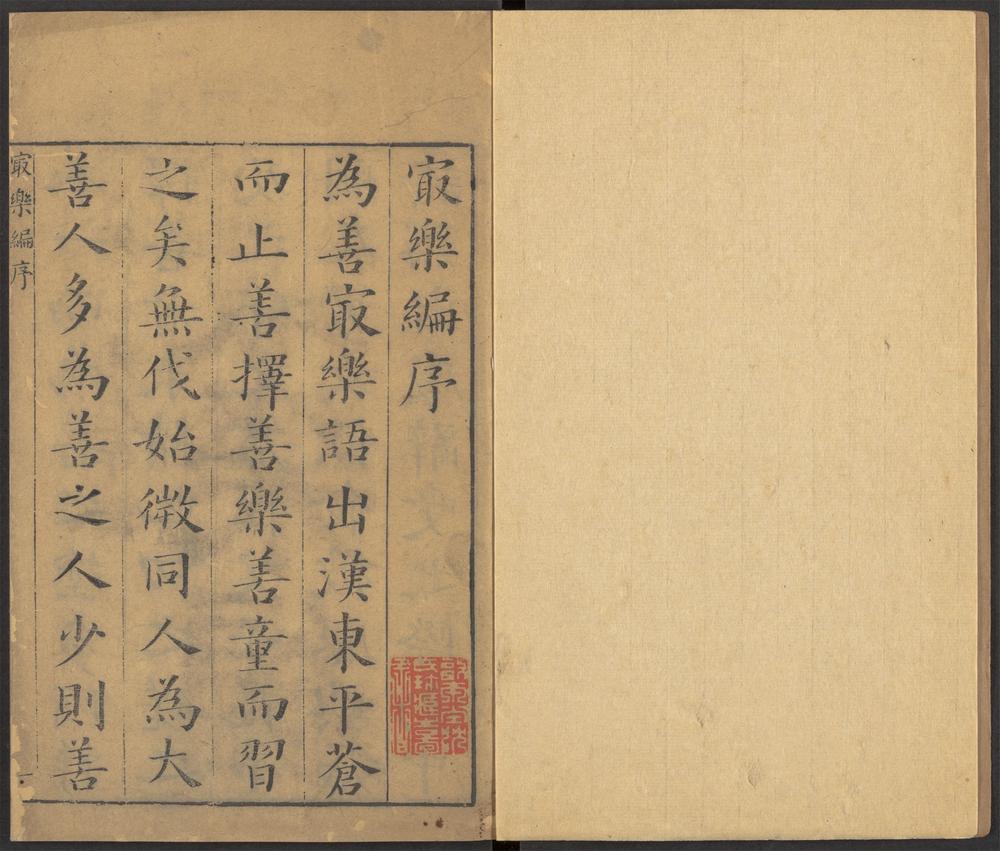 㝡樂編序
為善㝡樂語出漢東平蒼
而止善擇善樂善童而習
之矣無伐始微同人為大
善人多為善之人少則善
㝡樂編序
一